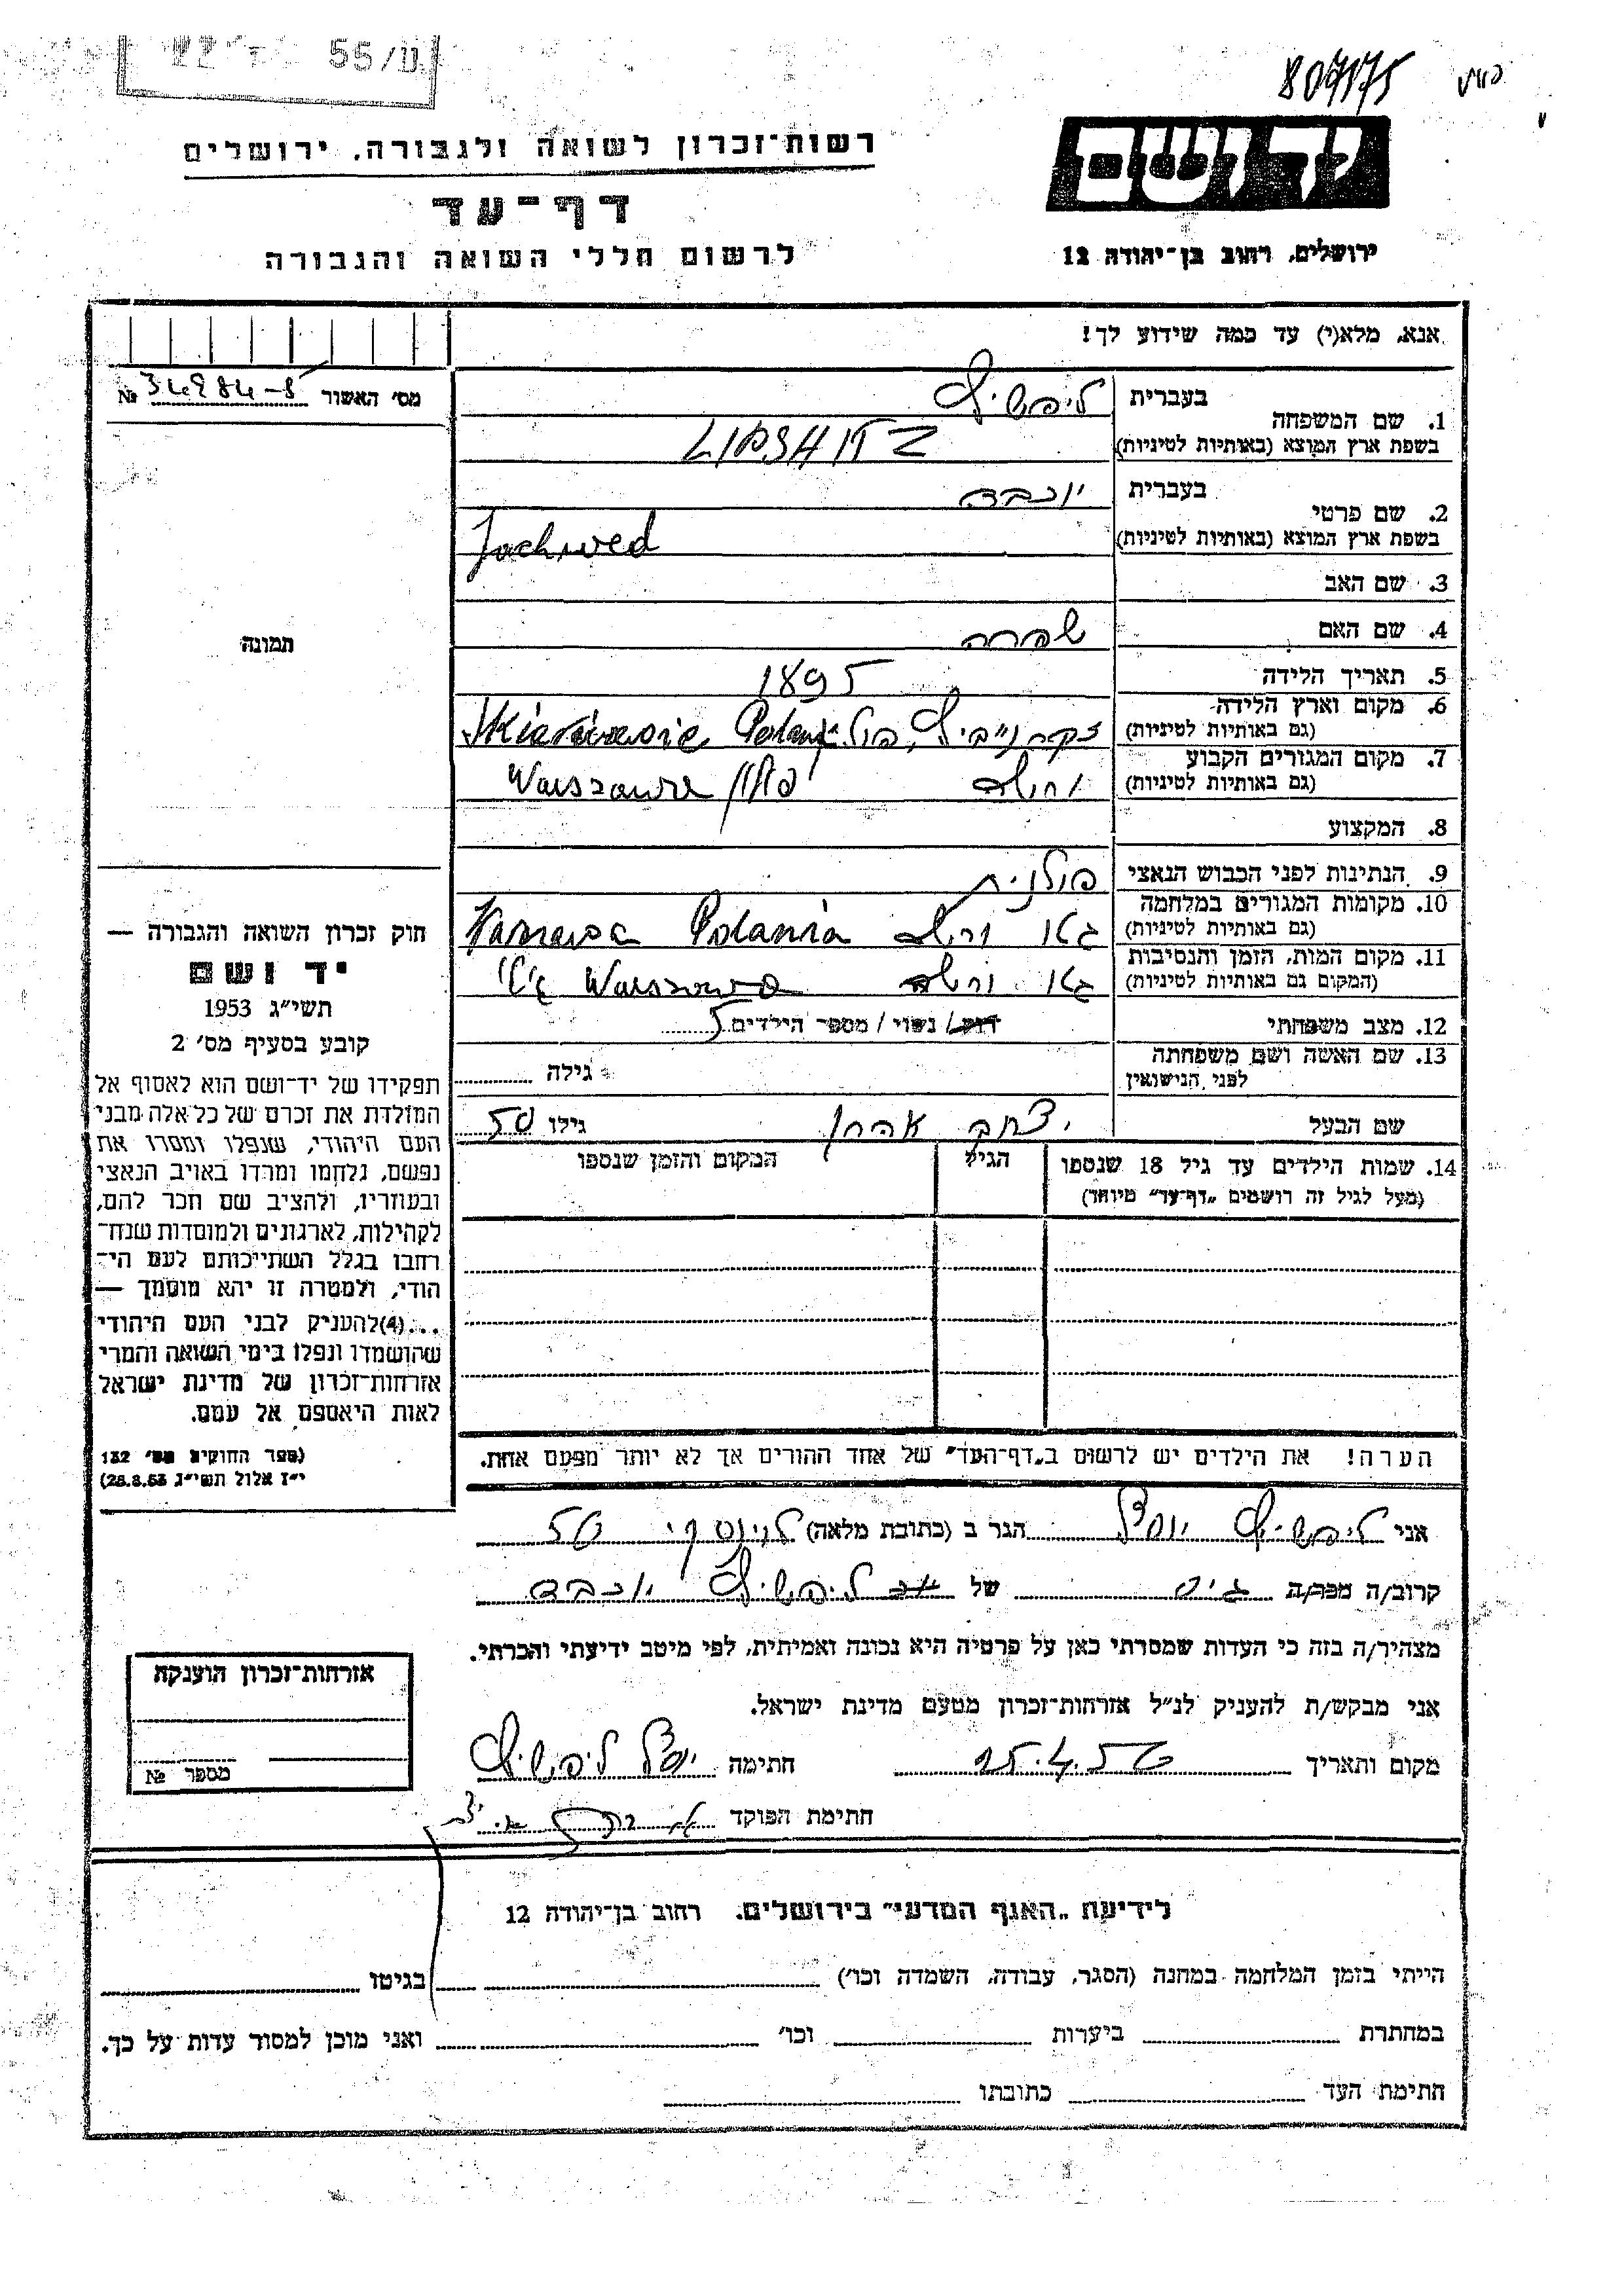 ע/55 ד 22
807175
רשות־זכרון לשואה ולגבורה, ירושלים
יד ושם
דף־עד
לרשום חללי השואה והגבורה
ירושלים, רחוב בן־יהודה 12
אנא, מלא(י) עד כמה שידוע לך!
מס׳ האשור № 34984-5
1. שם המשפחה בעברית ליפשיץ
בשפת ארץ המוצא (באותיות לטיניות) LIPSHITZ
2. שם פרטי בעברית יוכבד
בשפת ארץ המוצא (באותיות לטיניות) Jochwed
3. שם האב
4. שם האם שפרה
5. תאריך הלידה 1895
6. מקום וארץ הלידה
(גם באותיות לטיניות) Skierniewice Poland
7. מקום המגורים הקבוע
(גם באותיות לטיניות) ורשה פולין Warszawa
8. המקצוע
9. הנתינות לפני הכבוש הנאצי פולנית
10. מקומות המגורים במלחמה
(גם באותיות לטיניות) גטו ורשה Polania
11. מקום המות, הזמן והנסיבות
(המקום גם באותיות לטיניות) גטו ורשה Warszawa
12. מצב משפחתי רווק / נשוי / מספר הילדים 5
13. שם האשה ושם משפחתה
לפני הנישואין גילה
שם הבעל יצחק אהרן גילו 50
14. שמות הילדים עד גיל 18 שנספו הגיל המקום והזמן שנספו
(מעל לגיל זה רושמים „דף־עד״ מיוחד)
הערה! את הילדים יש לרשום ב„דף־העד״ של אחד ההורים אך לא יותר מפעם אחת.
תמונה
חוק זכרון השואה והגבורה —
יד ושם
תשי״ג 1953
קובע בסעיף מס׳ 2
תפקידו של יד־ושם הוא לאסוף אל
המולדת את זכרם של כל אלה מבני
העם היהודי, שנפלו ומסרו את
נפשם, נלחמו ומרדו באויב הנאצי
ובעוזריו, ולהציב שם וזכר להם,
לקהילות, לארגונים ולמוסדות שנח־
רבו בגלל השתייכותם לעם הי־
הודי, ולמטרה זו יהא מוסמך —
...(4) להעניק לבני העם היהודי
שהושמדו ונפלו בימי השואה והמרי
אזרחות־זכרון של מדינת ישראל
לאות היאספם אל עמם.
(ספר החוקים מס׳ 132
י״ז אלול תשי״ג 28.8.53)
אני ליפשיץ יוסף הגר ב (כתובת מלאה) 50
קרוב/ה מכר/ה גיס של ליפשיץ יוכבד
מצהיר/ה בזה כי העדות שמסרתי כאן על פרטיה היא נכונה ואמיתית, לפי מיטב ידיעתי והכרתי.
אני מבקש/ת להעניק לנ״ל אזרחות־זכרון מטעם מדינת ישראל.
מקום ותאריך 15.4.56 חתימה יוסף ליפשיץ
חתימת הפוקד
אזרחות־זכרון הוענקה
מספר №
לידיעת „האגף המדעי״ בירושלים, רחוב בן־יהודה 12
הייתי בזמן המלחמה במחנה (הסגר, עבודה, השמדה וכו׳) בגיטו
במחתרת ביערות וכו׳ ואני מוכן למסור עדות על כך.
חתימת העד כתובתו